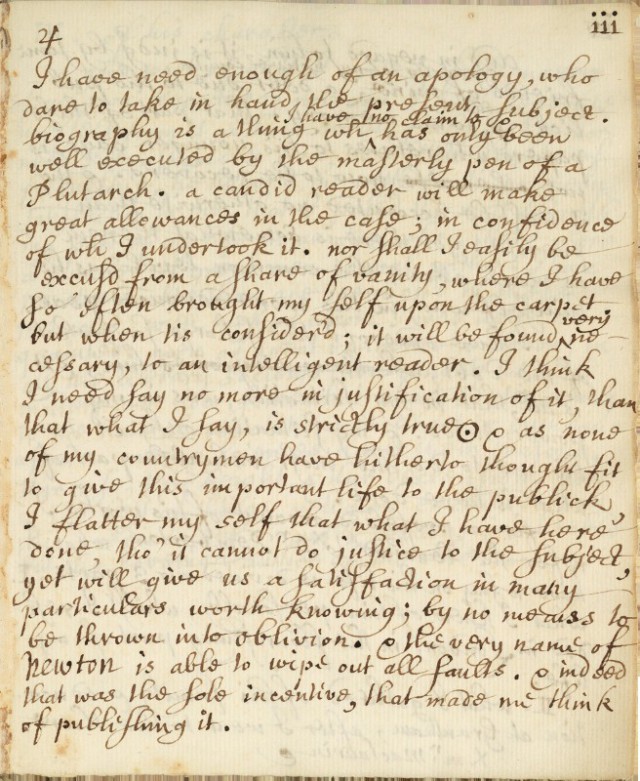 4 iii
I have need enough of an apology, who
dare to take in hand, the present subject.
I have no claim to &
biography is a thing wh, has only been
well executed by the masterly pen of a
Plutarch. a candid reader will make
great allowances in the case; in confidence
of wh I undertook it. nor shall I easily be
excusd from a share of vanity, where I have
so often brought my self upon the carpet
but when tis considerd; it will be found very ne-
cessary, to an intelligent reader. I think
I need say no more in justification of it, than
that what I say, is strickly true ⊙ & as none
of my countrymen have hitherto thought fit
to give this important life to the publick,
I flatter my self that what I have here
done, tho' it cannot do justice to the subject,
yet will give us a satisfaction in many
particulars worth knowing; by no means to
be thrown into oblivion. & the very name of
Newton is able to wipe out all faults. & indeed
that was the sole incentive, that made me think
of publishing it.